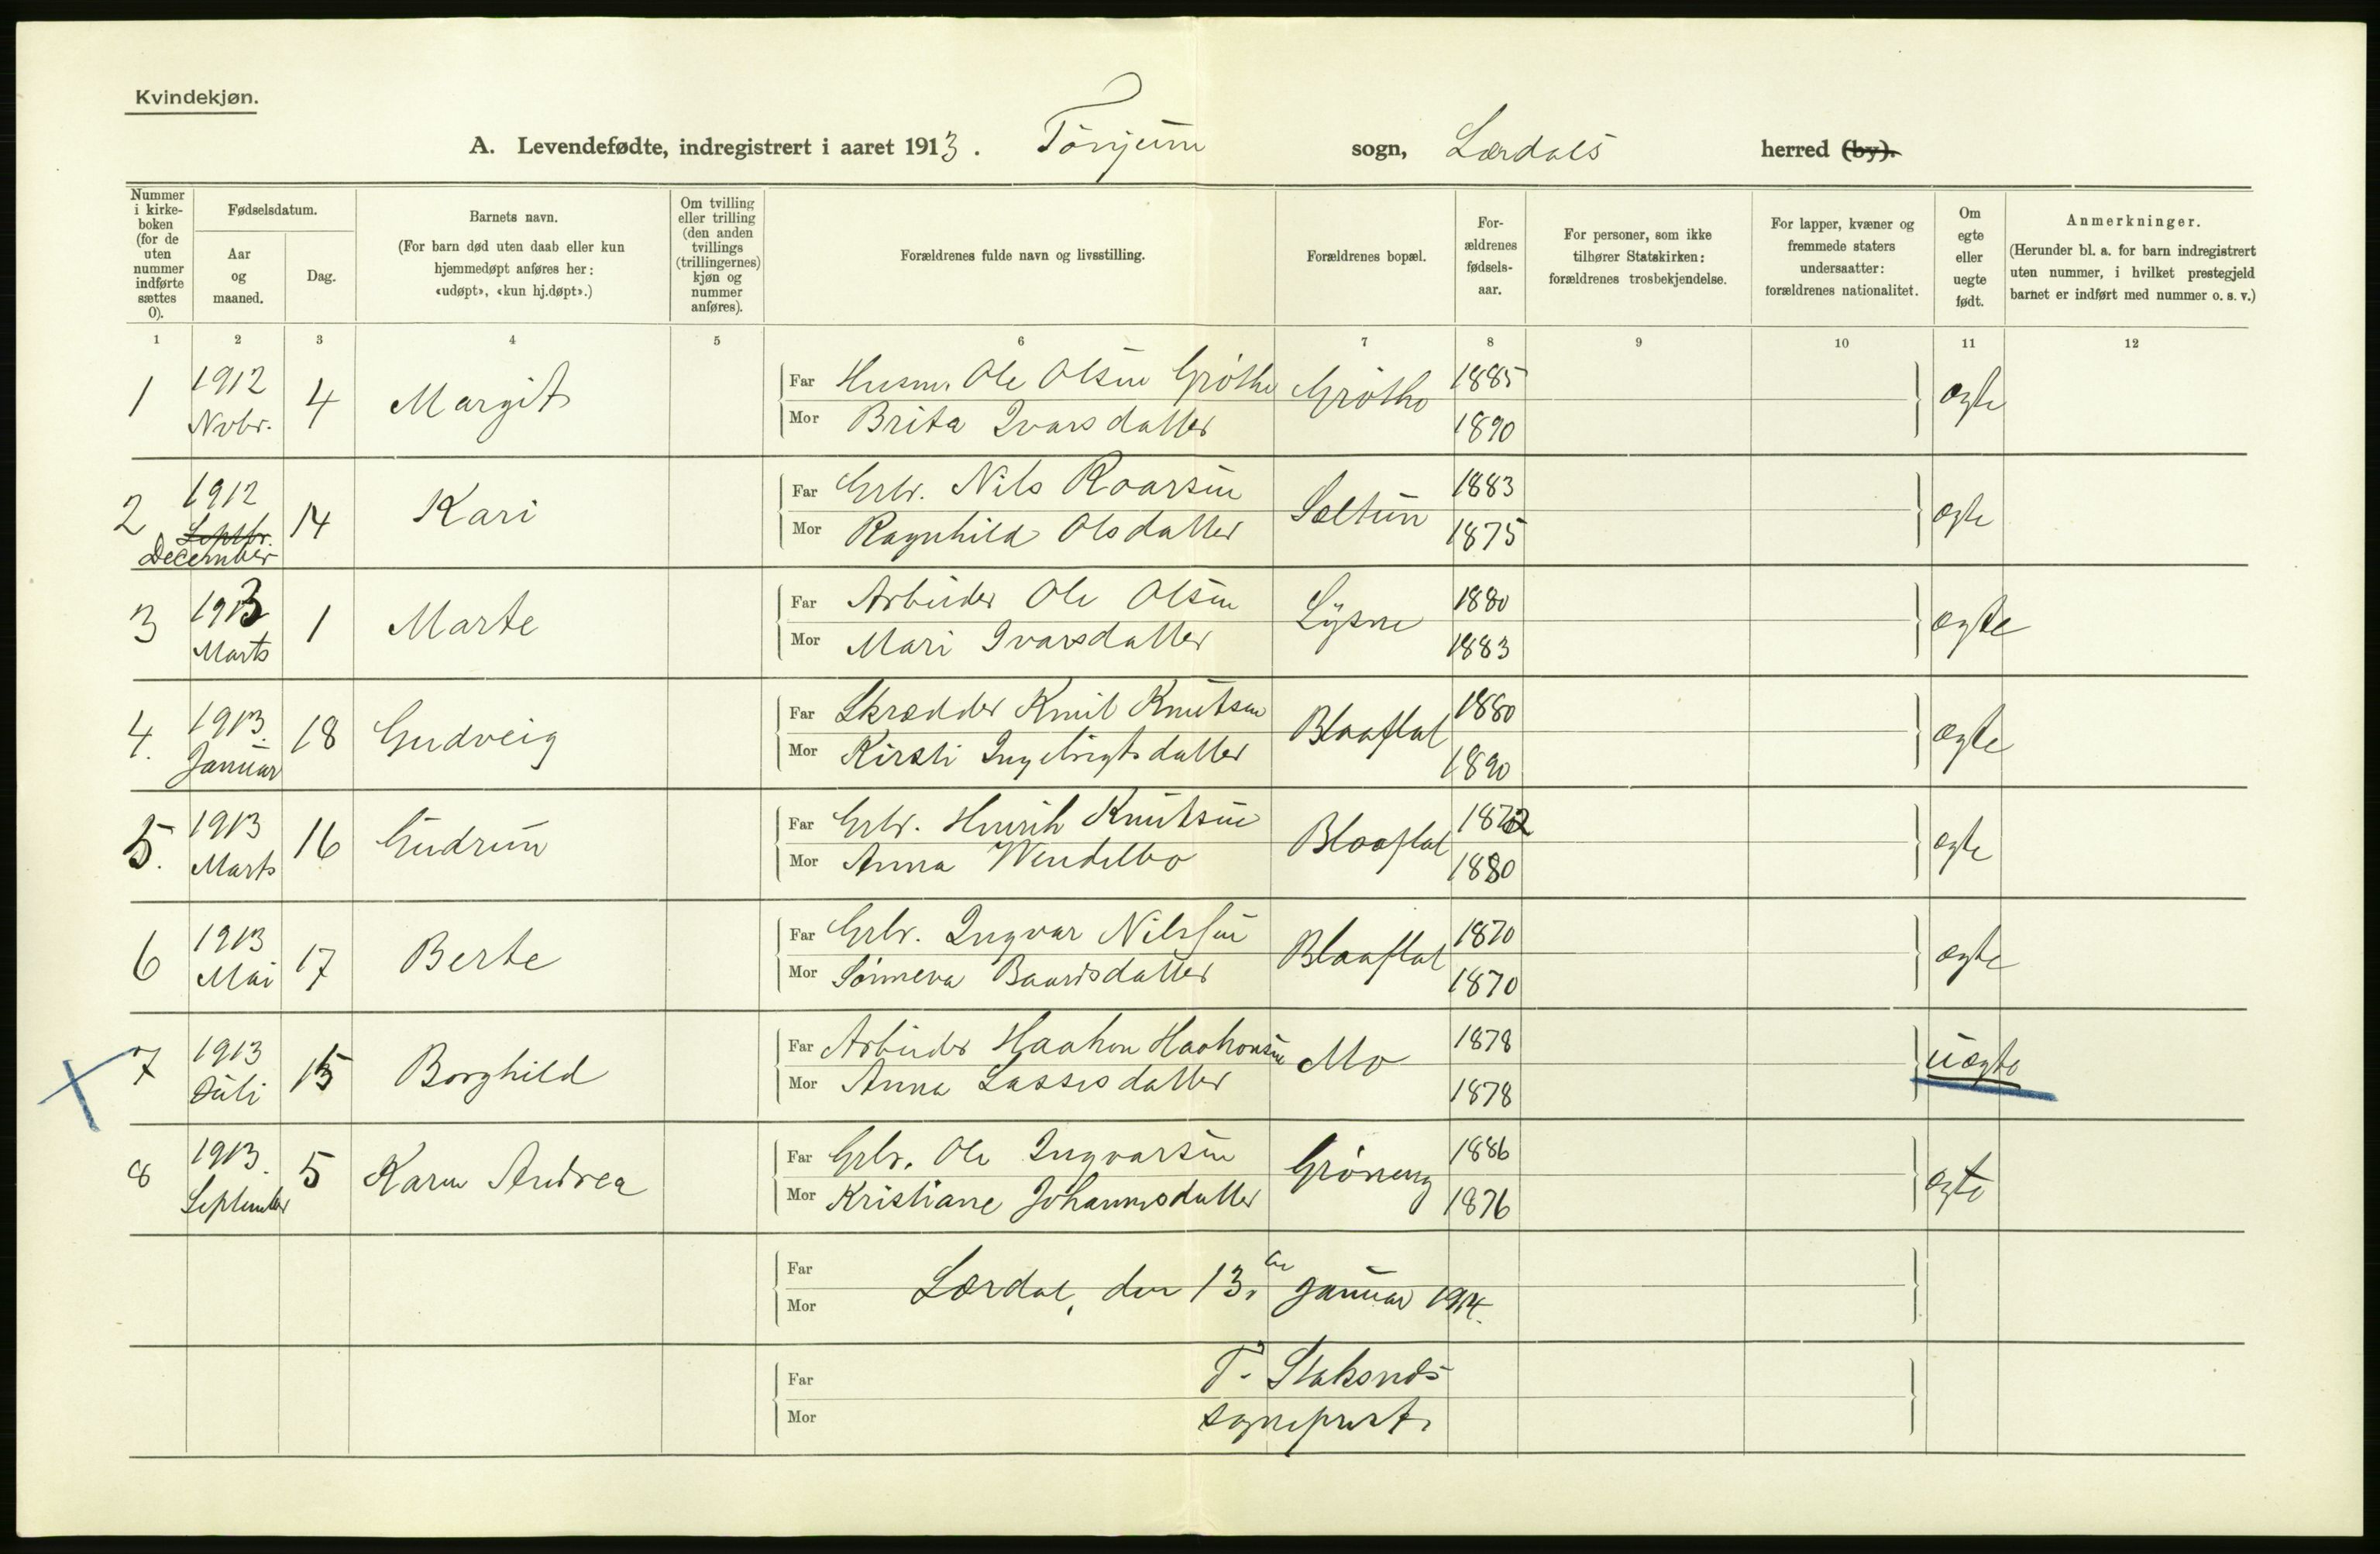 Kvindekjøn.
A. Levendefødte, indregistrert i aaret 1913. Tönjum sogn, Lærdals herred (by).
Nummer i kirke-boken (for de uten nummer indførte sættes 0).
Fødselsdatum.
Aar og maaned.
Dag.
Barnets navn.
(For barn død uten daab eller kun hjemmedøpt anføres her: «udøpt», «kun hj.døpt».)
Om tvilling eller trilling (den anden tvillings (trillingernes) kjøn og nummer anføres).
Forældrenes fulde navn og livsstilling.
Forældrenes bopæl.
For-ældrenes fødsels-aar.
For personer, som ikke tilhører Statskirken: forældrenes trosbekjendelse.
For lapper, kvæner og fremmede staters undersaatter: forældrenes nationalitet.
Om egte eller uegte født.
Anmerkninger.
(Herunder bl. a. for barn indregistrert uten nummer, i hvilket prestegjeld barnet er indført med nummer o. s. v.)
1 2 3 4 5 6 7 8 9 10 11 12
1 1912 Novbr. 4 Margit Far Husm. Ole Olsen Gröthe Gröthe 1885 ægte
Mor Brita Ivarsdatter 1890
2 1912 Septbr. December 14 Kari Far Grbr. Nils Roarsen Sæltun 1883 ægte
Mor Ragnhild Olsdatter 1875
3 1913 Marts 1 Marte Far Arbeider Ole Olsen Lysne 1880 ægte
Mor Mari Ivarsdatter 1883
4. 1913. Januar 18 Gudveig Far Skrædder Knut Knutsen Blaaflat 1880 ægte
Mor Kirsti Ingebrigtsdatter 1890
5. 1913 Marts 16 Gudrun Far Grbr. Henrik Knutsen Blaaflat 1872 ægte
Mor Anna Wendelbo 1880
6 1913 Mai 17 Berte Far Grbr. Ingvar Nilssen Blaaflat 1870 ægte
Mor Sönneva Baardsdatter 1870
7 1913 Juli 15 Borghild Far Arbeider Haakon Haakonsen Mo 1878 uægte
Mor Anna Lassesdatter 1878
8 1913. September 5 Karen Andrea Far Grbr. Ole Ingvarsen Gröneng 1886 ægte
Mor Kristiane Johannesdatter 1876
Far
Mor
Lærdal, den 13.de Januar 1914.
Far
Mor
sogneprest.